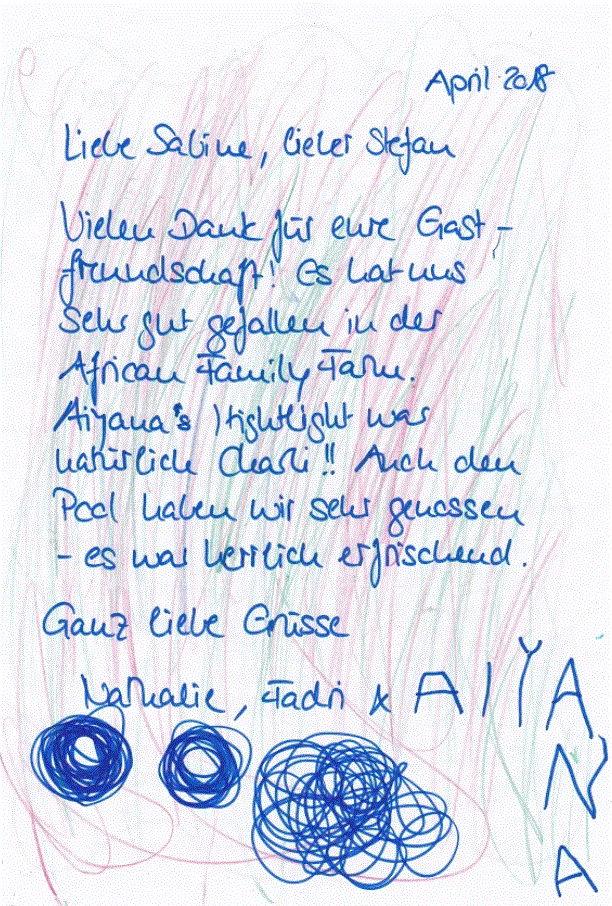 April 2018
Liebe Sabine, lieber Stefan
Vielen Dank für eure Gast-
freundschaft! Es hat uns
sehr gut gefallen in der
African Family Farm.
Aiyana's Hightlight war
natürlich Charli!! Auch den
Pool haben wir sehr genossen
- es war herrlich erfrischend.
Ganz liebe Grüsse
Nathalie, Fadri & AIYANA